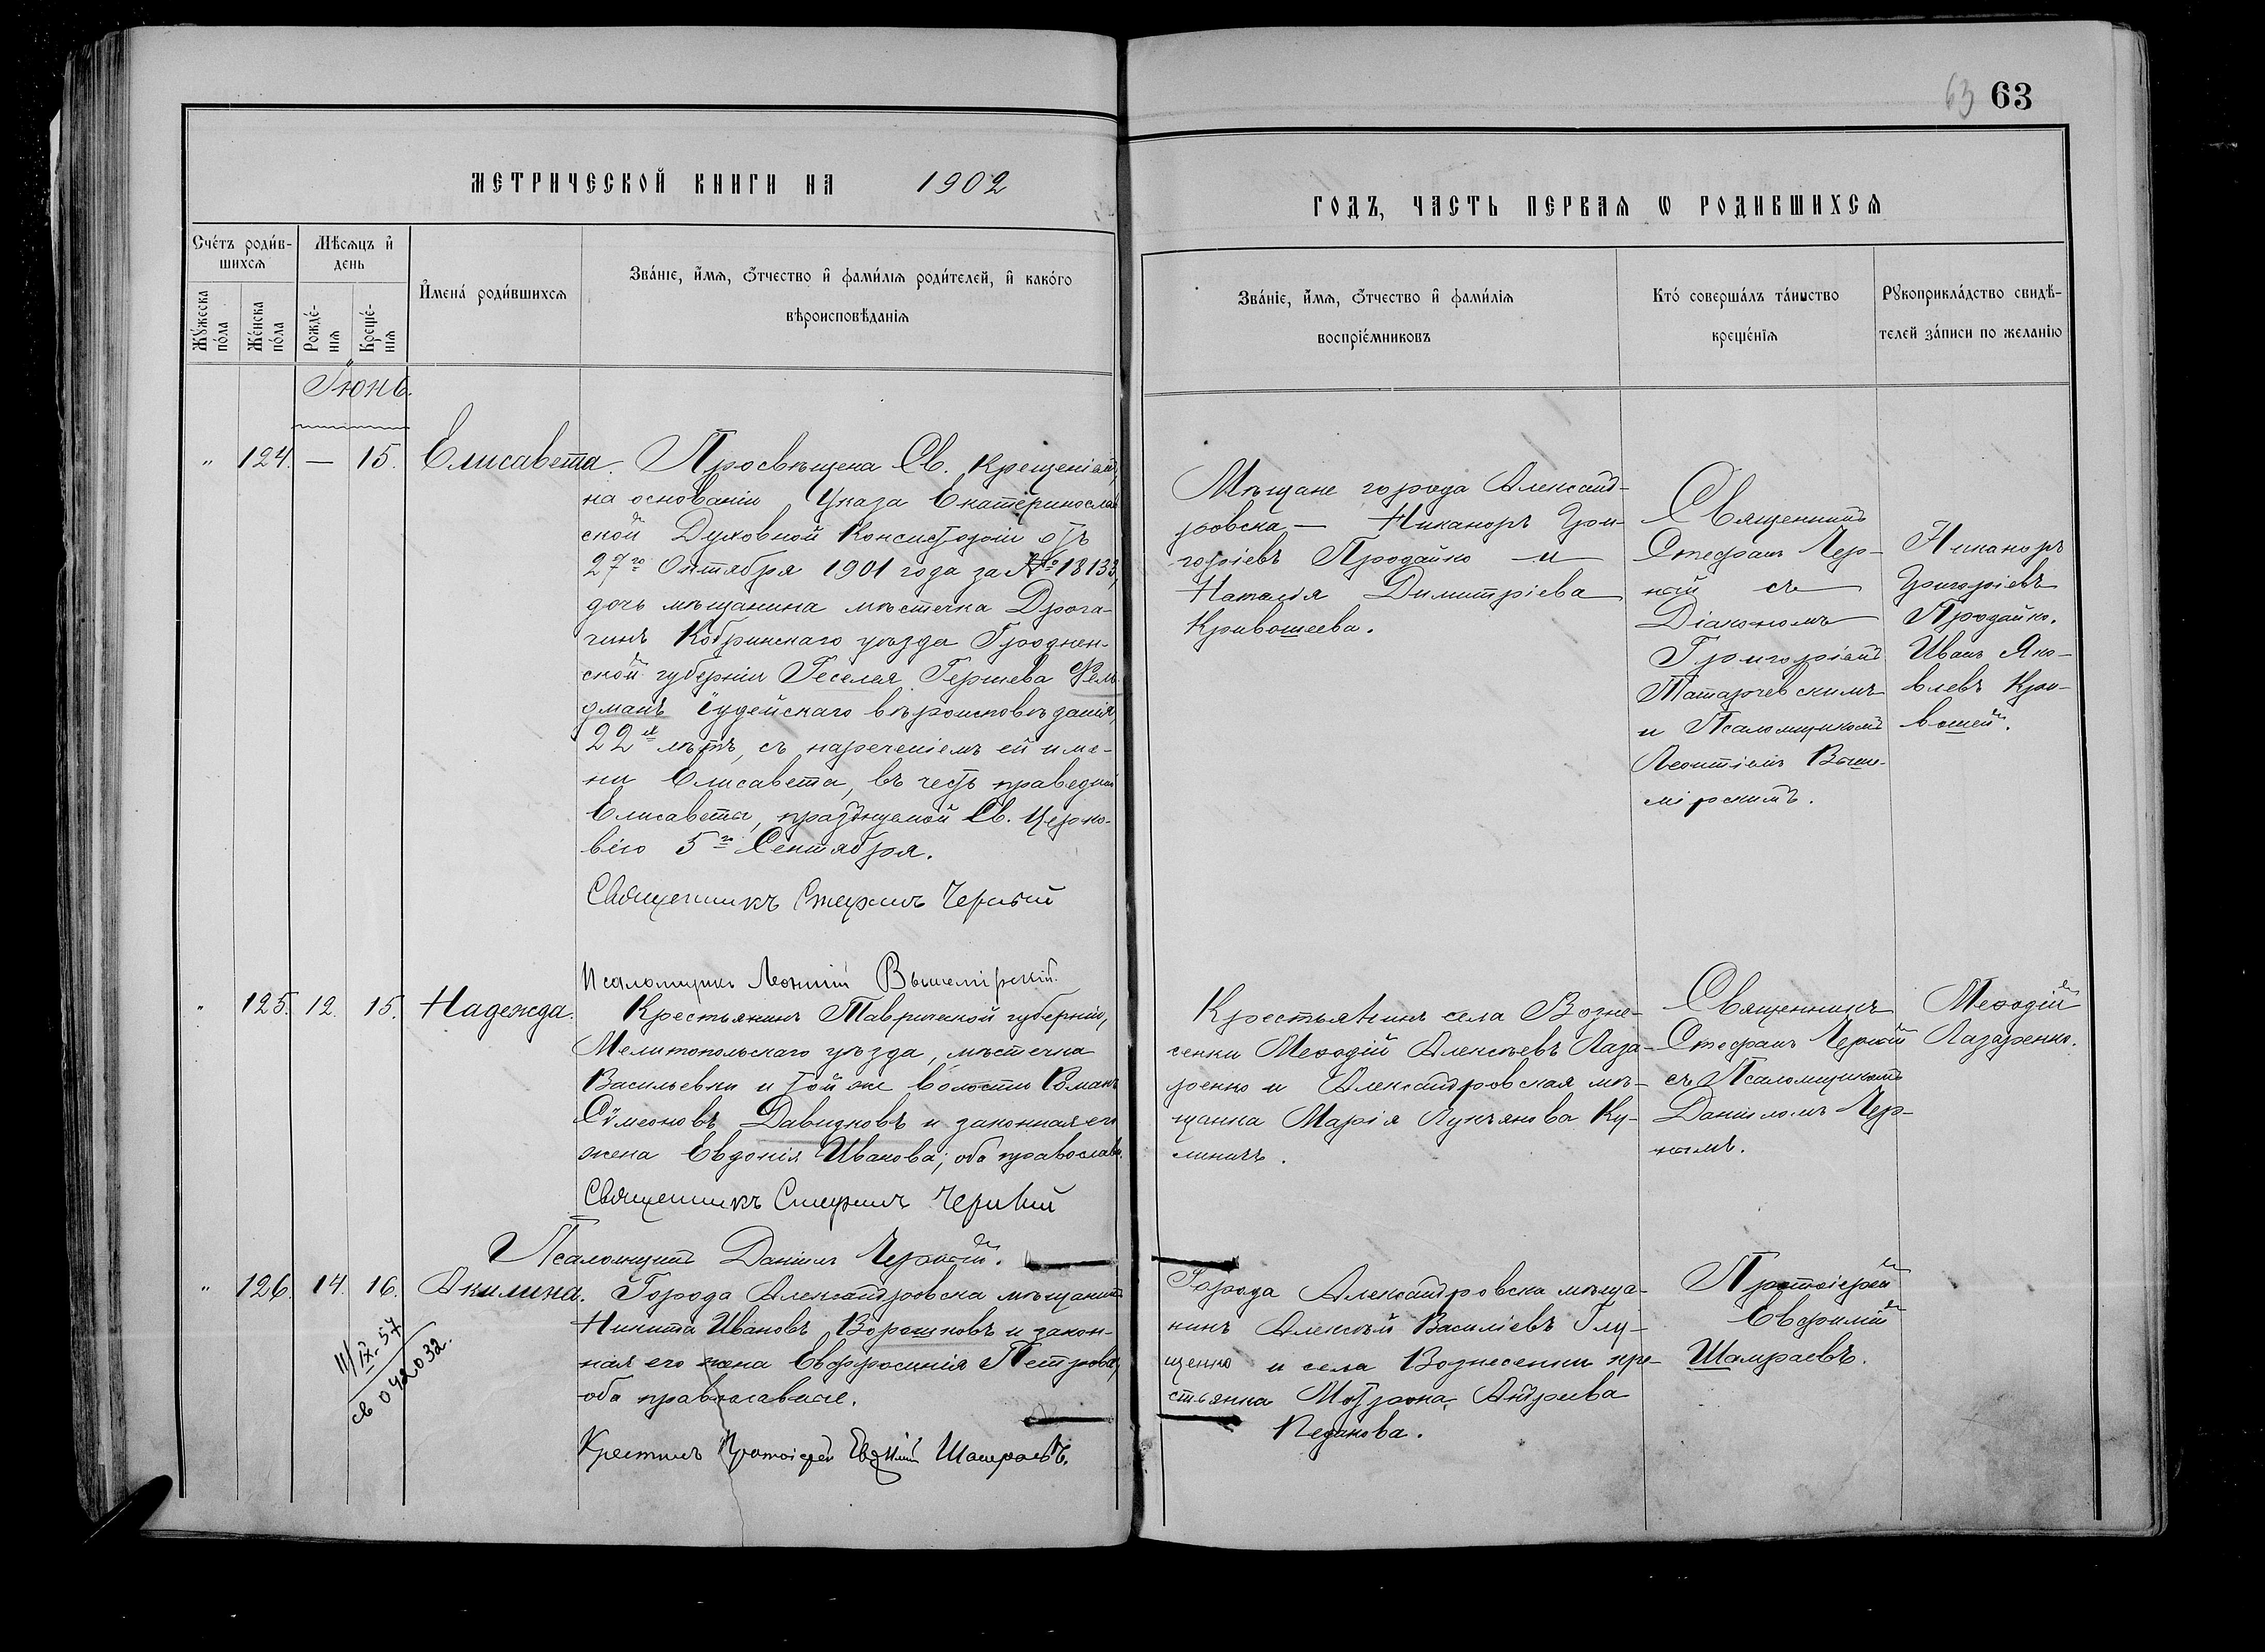 63 63
МЕТРИЧЕСКОЙ КНИГИ НА 1902
ГОДЪ, ЧАСТЬ ПЕРВАЯ Ѡ РОДИВШИХСЯ
Сче́тъ роди́в-
шихсѧ
Мѣсѧцъ и҆
день
И҆мена́ роди́вшихсѧ
Зва́нїе, и҆́мѧ, ѻ҆́тчество и҆ фами́лїѧ роди́телей, и҆ како́гѡ
вѣроисповѣ́данїѧ
Мꙋ́жеска
по́ла
Же́нска
по́ла
Рожде́-
нїѧ
Креще́-
нїѧ
Зва́нїе, и҆́мѧ, ѻ҆́тчество и҆ фами́лїѧ
воспрїе́мниковъ
Кто́ соверша́лъ та́инство
креще́нїѧ
Рꙋкоприкла́дство свидѣ́-
телей за́писи по жела́нїю
Іюнь.
" 124. — 15. Елисавета.
Просвѣщена Св. Крещеніемъ,
на основаніи Указа Екатеринослав
ской Духовной Консисторіи отъ
27го Октября 1901 года за № 18133,
дочь мѣщанина мѣстечка Дрога-
чинъ Кобринскаго уѣзда Гроднен-
ской губерніи Геселая Гершева Фель
дманъ іудейскаго вѣроисповѣданія,
22х лѣтъ, съ нареченіемъ ей име-
ни Елисавета, въ честь праведной
Елисаветы, празднуемой Св. Церко-
вію 5го Сентября.
Священникъ Стефанъ Черный
Псаломщикъ Леонтій Вышемірскій.
Мѣщане города Александ-
ровска — Никаноръ Гри-
горіевъ Продайко и
Наталія Димитріева
Кривошеева.
Священникъ
Стефанъ Чер-
ный съ
Діакономъ
Григоріемъ
Татарчевскимъ
и Псаломщикомъ
Леонтіемъ Выше-
мірскимъ.
Никаноръ
Григоріевъ
Продайко.
Иванъ Яко-
влевъ Кри-
вошей.
" 125. 12. 15. Надежда.
Крестьянинъ Таврической губерніи,
Мелитопольскаго уѣзда, мѣстечка
Васильевки и той же волости Романъ
Сѵмеоновъ Давидковъ и законная его
жена Евдокія Иванова; оба православн.
Священникъ Стефанъ Черный
Псаломщикъ Даніилъ Черный.
Крестьянинъ села Возне-
сенки Меѳодій Алексѣевъ Лаза-
ренко и Александровская мѣ-
щанка Марія Лукъянова Ку-
линичъ.
Священникъ
Стефанъ Черный
съ Псаломщикомъ
Даніиломъ Чер-
нымъ.
Меѳодій
Лазаренко.
" 126. 14. 16. Акилина.
11/IX-57
св 042032.
Города Александровска мѣщанинъ
Никита Ивановъ Ворошковъ и закон-
ная его жена Евфросинія Петрова,
оба православные.
Крестилъ Протоіерей Евѳимій Шамраевъ.
Города Александровска мѣща-
нинъ Алексѣй Василіевъ Глу-
щенко и села Вознесенки кре-
стьянка Матрона Андреева
Педанова.
Протоіерей
Евфимій
Шамраевъ.